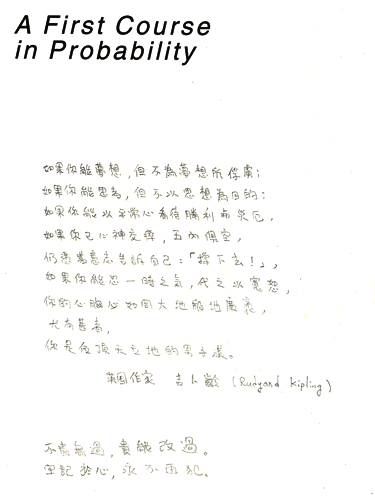 A First Course
in Probability
如果你能夢想，但不為夢想所俘虜；
如果你能思考，但不以思想為目的；
如果你能以平常心看待勝利和災厄，
如果你已心神交瘁，五內俱空，
仍憑著意志告訴自己：「撐下去！」，
如果你能忍一時之氣，代之以寬恕，
你的心胸必如同大地般地廣袤，
尤有甚者，
你是個頂天立地的男子漢。
英國作家 吉卜齡 (Rudyard Kipling)
不貴無過，貴能改過。
牢記於心，永不再犯。